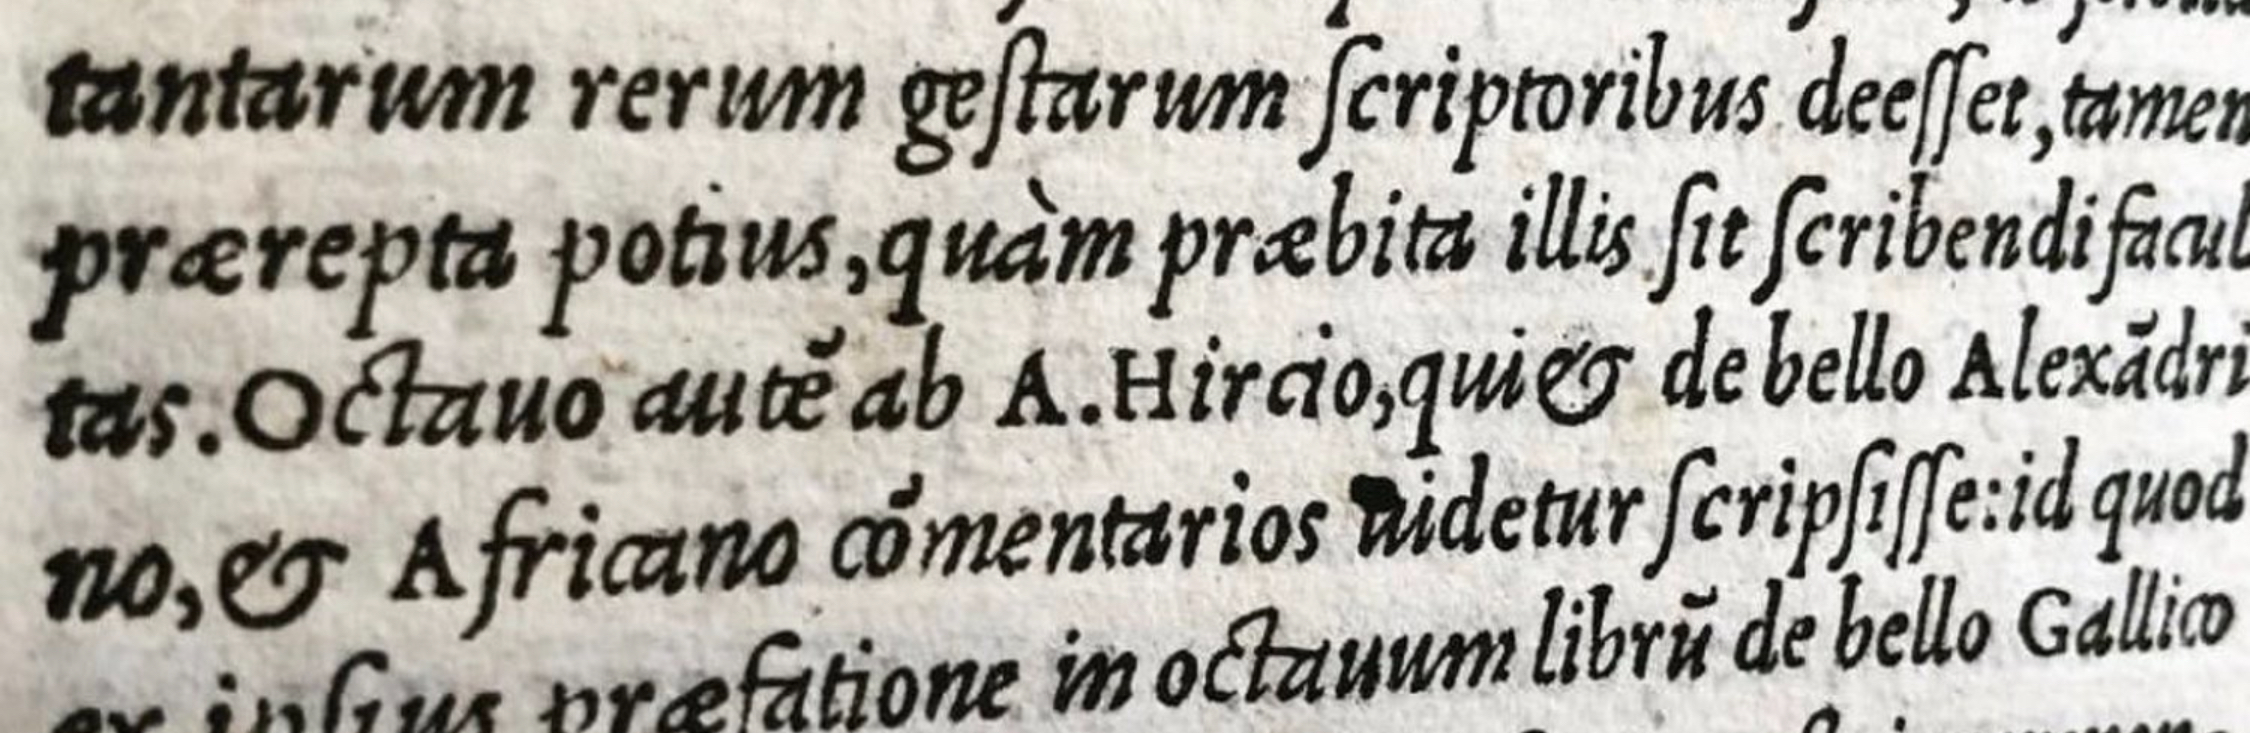 tantarum rerum geſtarum ſcriptoribus deeſſet, tamen
prærepta potius, quàm præbita illis ſit ſcribendi facul
tas. Octauo autẽ ab A. Hircio, qui & de bello Alexãdri
no, & Africano cõmentarios uidetur ſcripſiſſe: id quod
ex ipſius præfatione in octauum librũ de bello Gallico